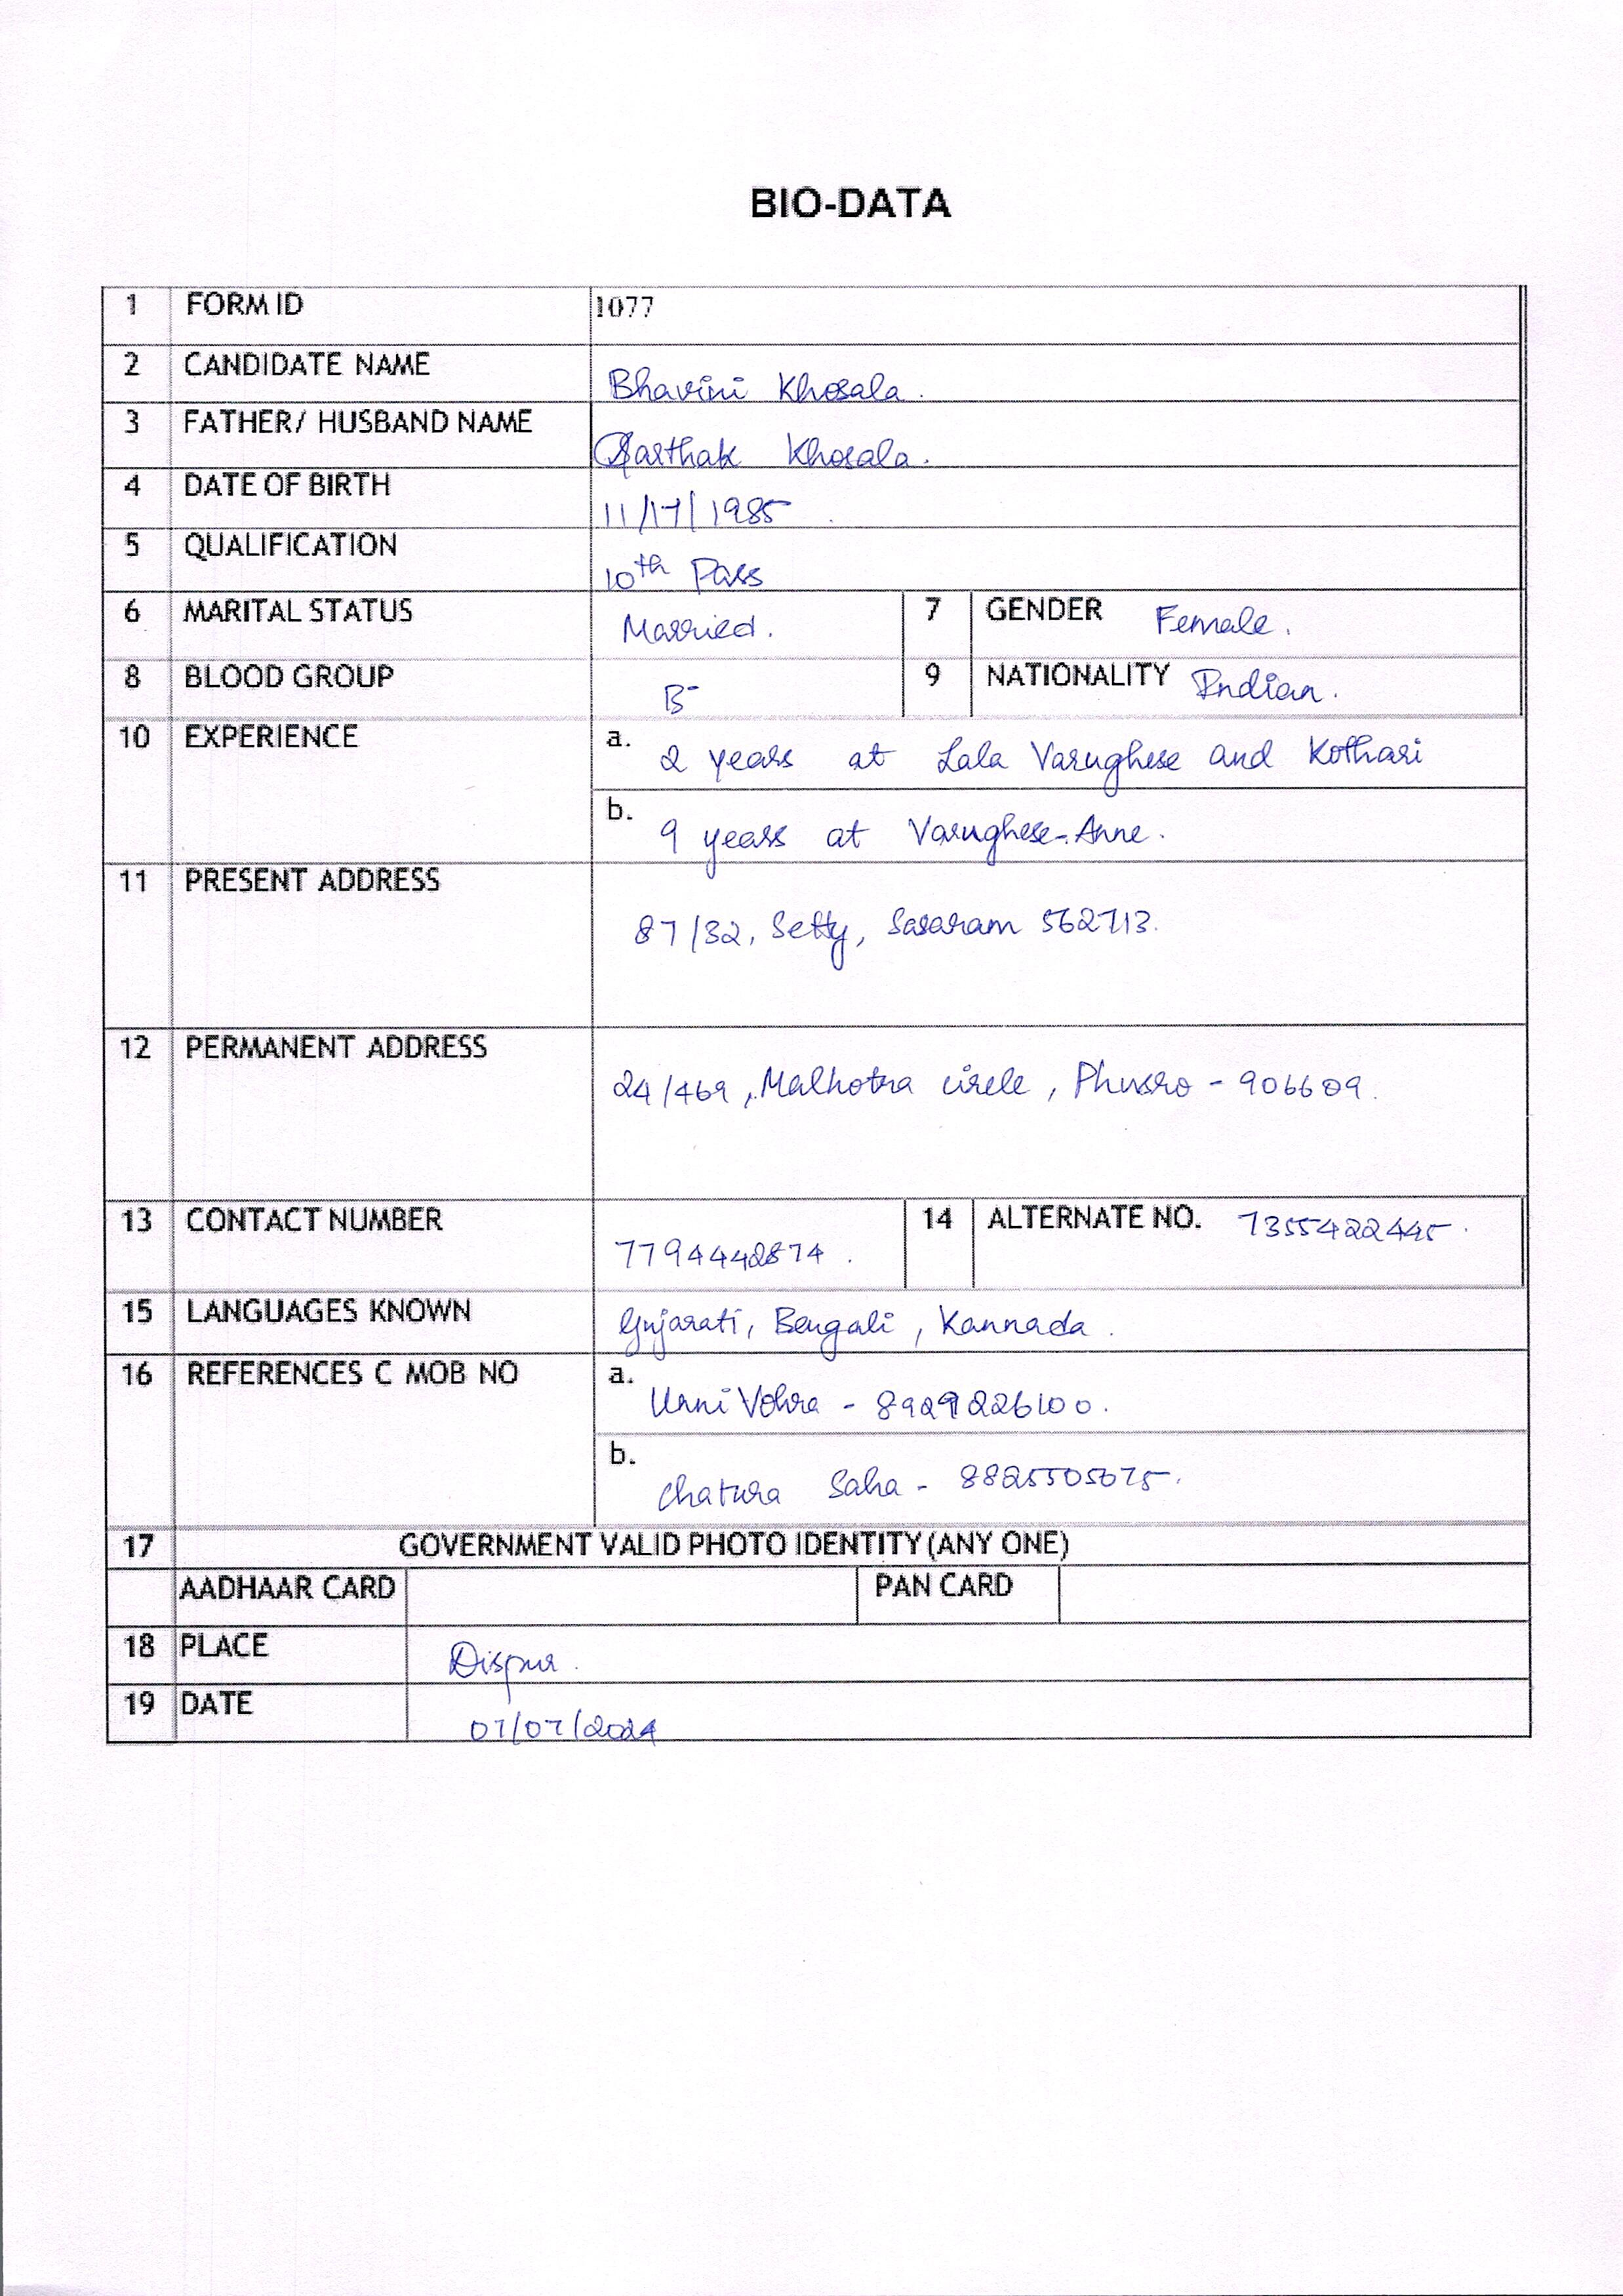 BIO-DATA
1 FORM ID 1077
2 CANDIDATE NAME Bhavini Khosala.
3 FATHER/ HUSBAND NAME Sarthak Khosala.
4 DATE OF BIRTH 11/17/1985
5 QUALIFICATION 10th Pass
6 MARITAL STATUS Married. 7 GENDER Female.
8 BLOOD GROUP B- 9 NATIONALITY Indian.
10 EXPERIENCE a. 2 years at Lala Varughese and Kothari
b. 9 years at Varughese-Anne.
11 PRESENT ADDRESS
87/32, Setty, Sasaram 562713.
12 PERMANENT ADDRESS
24/469, Malhotra circle, Phusro - 906609.
13 CONTACT NUMBER 7794442874. 14 ALTERNATE NO. 7355422445.
15 LANGUAGES KNOWN Gujarati, Bengali, Kannada.
16 REFERENCES C MOB NO a. Urni Vohra - 8929226100.
b. Chatura Saha - 8825505675.
17 GOVERNMENT VALID PHOTO IDENTITY(ANY ONE)
AADHAAR CARD PAN CARD
18 PLACE Dispur.
19 DATE 07/07/2024